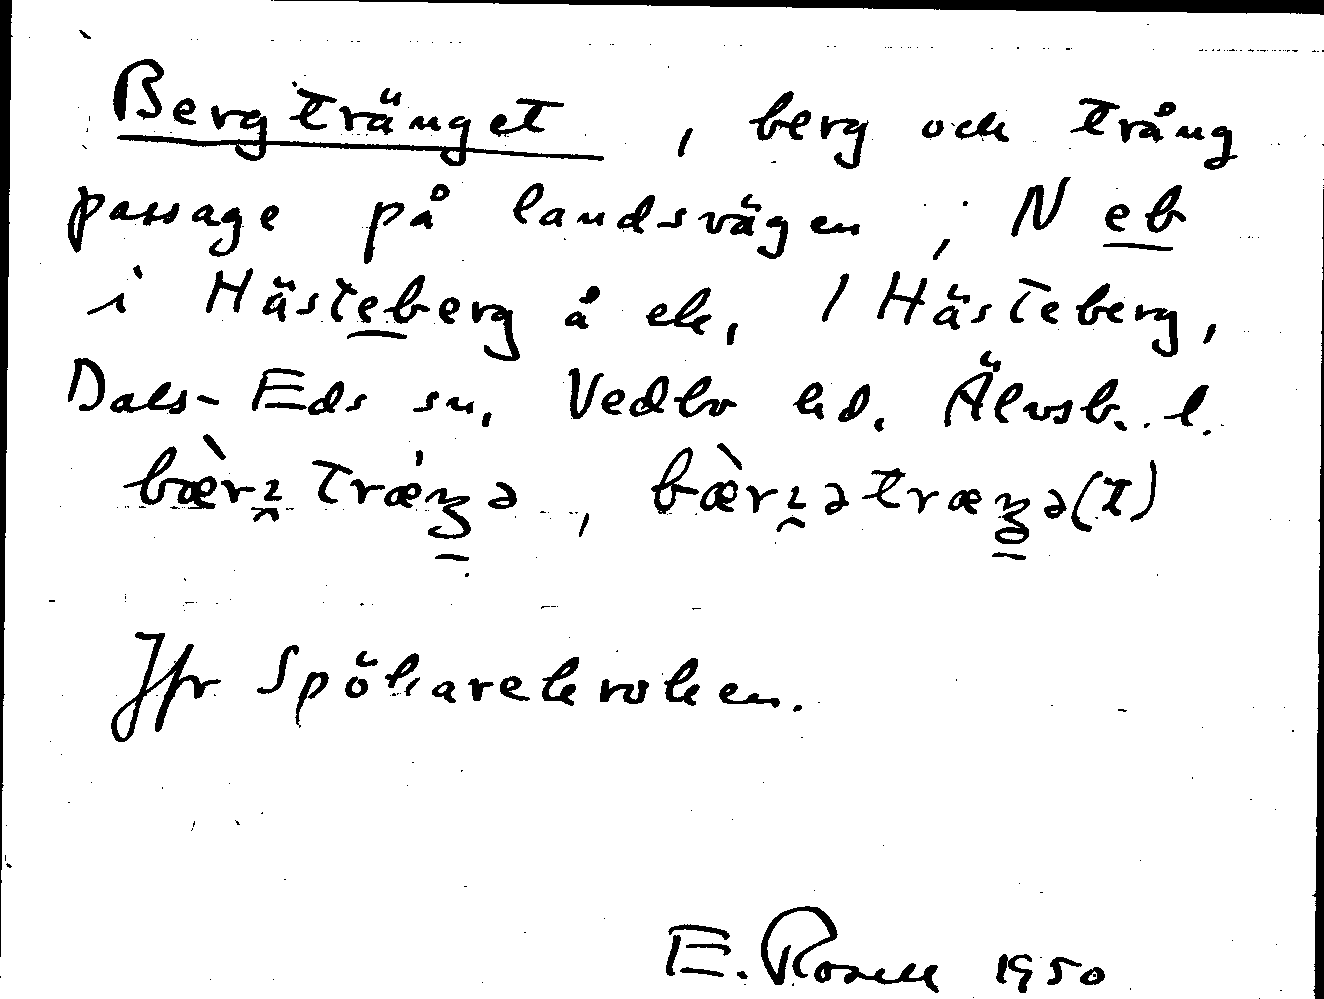 Bergtränget, berg och trång
passage på landsvägen, N eb
i Hästeberg å ek. / Hästeberg,
Dals-Eds sn, Vedbo hd. Älvsb. l.
Jfr Spökarekroken.
E. Rosell 1950